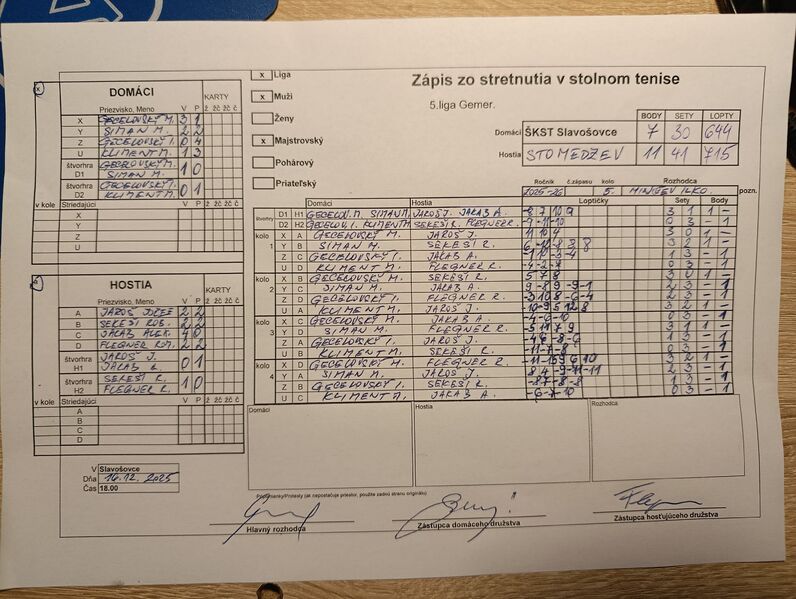 Zápis zo stretnutia v stolnom tenise
5.liga Gemer.
x Liga
x Muži
Ženy
x Majstrovský
Pohárový
Priateľský
BODY SETY LOPTY
Domáci ŠKST Slavošovce 7 30 644
Hostia STO MEDZEV 11 41 715
Ročník č.zápasu kolo Rozhodca
2025-26 5. MINČEV ILKO. pozn.
x DOMÁCI
KARTY
Priezvisko, Meno V P ž žč žč č
X GECELOVSKÝ M. 3 1
Y SIMAN M. 2 2
Z GECELOVSKÝ I. 0 4
U KLIMENT M. 1 3
štvorhra D1 GECELOVSKÝ M. SIMAN M. 1 0
štvorhra D2 GECELOVSKÝ I. KLIMENT M. 0 1
v kole Striedajúci
X
Y
Z
U
HOSTIA
KARTY
Priezvisko, Meno V P ž žč žč č
A JAROŠ JOZEF 2 2
B SEKEŠI ROB. 2 2
C JAKAB ALEX. 4 0
D FLEGNER ROM. 2 2
štvorhra H1 JAROŠ J. 0 1
štvorhra H2 SEKEŠI R. FLEGNER R. 1 0
v kole Striedajúci
A
B
C
D
V Slavošovce
Dňa 16.12. 2025
Čas 18.00
Domáci Hostia Loptičky Sety Body
štvorhry D1 H1 GECELOV. M. SIMAN M. JAROŠ J. JAKAB A. -8 7 10 9 3 1 1 -
D2 H2 GECELOV. I. KLIMENT M. SEKEŠI R. FLEGNER R. -9 -11 -10 0 3 - 1
kolo 1 X A GECELOVSKÝ M. JAROŠ J. 11 10 4 3 0 1 -
Y B SIMAN M. SEKEŠI R. 3 2 1 -
Z C GECELOVSKÝ I. JAKAB A. 1 3 - 1
U D KLIMENT M. FLEGNER R. -4 -2 -7 0 3 - 1
kolo 2 X B GECELOVSKÝ M. SEKEŠI R. 5 7 8 3 0 1 -
Y C SIMAN M. JAKAB A. 9 -8 9 -9 -1 2 3 - 1
Z D GECELOVSKÝ I. FLEGNER R. -3 10 8 -6 -4 2 3 - 1
U A KLIMENT M. JAROŠ J. -10 9 5 12 8 3 2 1 -
kolo 3 X C GECELOVSKÝ M. JAKAB A. -4 -6 -10 0 3 - 1
Y D SIMAN M. FLEGNER R. -5 11 7 9 3 1 1 -
Z A GECELOVSKÝ I. JAROŠ J. 1 3 - 1
U B KLIMENT M. SEKEŠI R. -11 -7 -8 0 3 - 1
kolo 4 X D GECELOVSKÝ M. FLEGNER R. 3 2 1 -
Y A SIMAN M. JAROŠ J. 8 4 -9 -11 -11 2 3 - 1
Z B GECELOVSKÝ I. SEKEŠI R. -8 7 -8 -8 1 3 - 1
U C KLIMENT M. JAKAB A. -6 -7 -10 0 3 - 1
Domáci
Hostia
Rozhodca
Pripomienky/Protesty (ak nepostačuje priestor, použite zadnú stranu originálu)
Hlavný rozhodca
Zástupca domáceho družstva
Zástupca hosťujúceho družstva